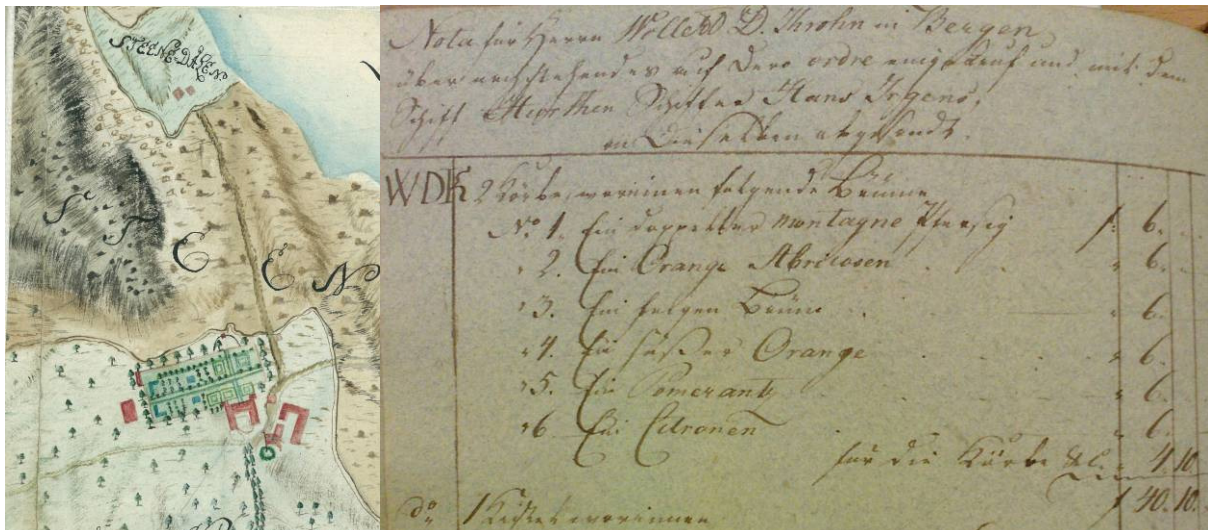 STEENE-DALEN
S T E E N
Nota für Herrn Wollert D. Krohn in Bergen
über nachstehendes auf Dero ordre eingekauf und mit dem
Schiff Schiffer Hans Irgens,
an Dieselben abgesandt.
WDK 2 Körbe, worinnen folgende Bäume
No 1. Ein doppelter montagne Pfersig f: 6.
" 2. Ein Orange Abricosen " 6.
" 3. Ein feigen Baum " 6.
" 4. Ein süßer Orange " 6.
" 5. Ein Pomerantz " 6.
" 6. Ein Citronen " 6.
für die Körbe &c. " 4.10.
f 40.10.
do 1 worinnen